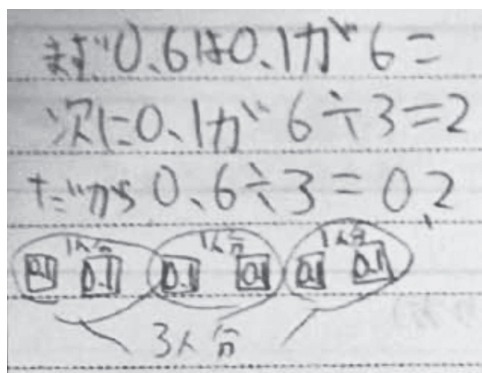 まず0.6は0.1が6こ
次に0.1が6÷3=2
だから0.6÷3=0.2
1人分 1人分 1人分
0.1 0.1 0.1 0.1 0.1 0.1
3人分